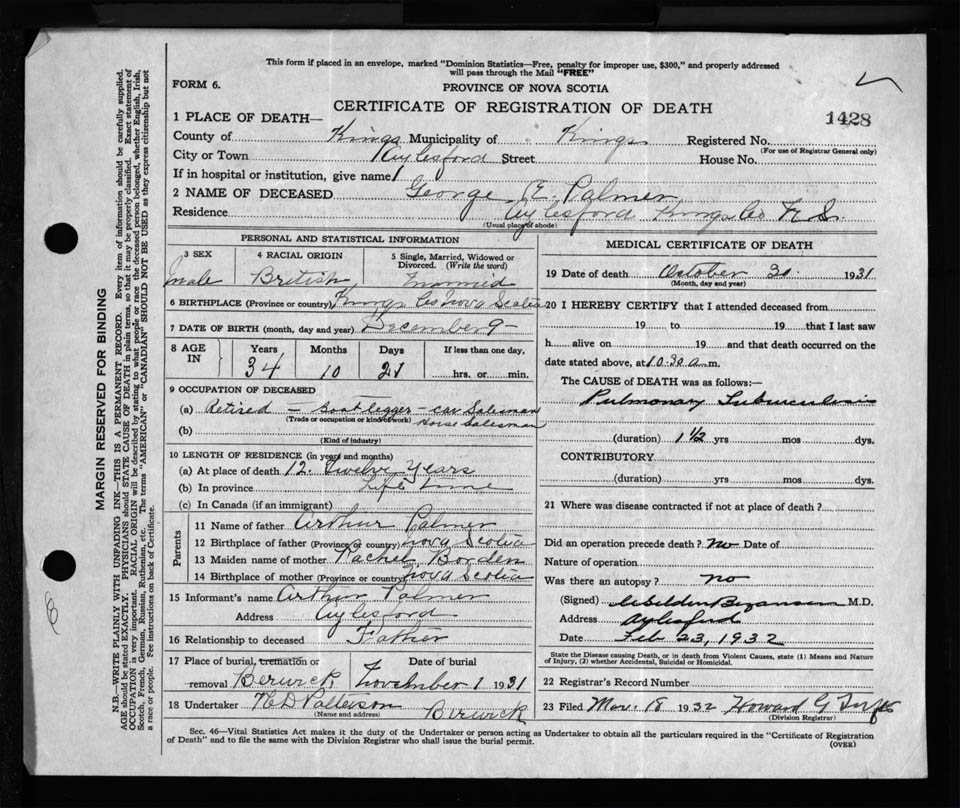 This form if placed in an envelope, marked "Dominion Statistics—Free, penalty for improper use, $300," and properly addressed
will pass through the Mail "FREE"
FORM 6.
PROVINCE OF NOVA SCOTIA
CERTIFICATE OF REGISTRATION OF DEATH
1428
1 PLACE OF DEATH—
County of Kings Municipality of Kings Registered No.
(For use of Registrar General only)
City or Town Aylesford Street House No.
If in hospital or institution, give name
2 NAME OF DECEASED George E. Palmer
Residence Aylesford Kings Co N.S.
(Usual place of abode)
PERSONAL AND STATISTICAL INFORMATION
3 SEX 4 RACIAL ORIGIN 5 Single, Married, Widowed or Divorced. (Write the word)
male British married
6 BIRTHPLACE (Province or country) Kings Co Nova Scotia
7 DATE OF BIRTH (month, day and year) December 9—
8 AGE IN Years Months Days If less than one day,
34 10 21 hrs. or min.
9 OCCUPATION OF DECEASED
(a) Retired — Bootlegger — car Salesman
(Trade or occupation or kind of work) Horse Salesman
(b)
(Kind of industry)
10 LENGTH OF RESIDENCE (in years and months)
(a) At place of death 12. Twelve Years
(b) In province Life time
(c) In Canada (if an immigrant)
Parents
11 Name of father Arthur Palmer
12 Birthplace of father (Province or country) Nova Scotia
13 Maiden name of mother Rachel Borden
14 Birthplace of mother (Province or country) Nova Scotia
15 Informant's name Arthur Palmer
Address Aylesford
16 Relationship to deceased Father
17 Place of burial, cremation or removal Date of burial
Berwick, November 1 1931
18 Undertaker H D Patterson Berwick
(Name and address)
MEDICAL CERTIFICATE OF DEATH
19 Date of death October 30. 1931
(Month, day and year)
20 I HEREBY CERTIFY that I attended deceased from
19 to 19 that I last saw
h alive on 19 and that death occurred on the
date stated above, at 10.30 a m.
The CAUSE of DEATH was as follows:—
Pulmonary Tuberculosis
(duration) 1½ yrs mos dys.
CONTRIBUTORY
(duration) yrs mos dys.
21 Where was disease contracted if not at place of death ?
Did an operation precede death ? No Date of
Nature of operation
Was there an autopsy ? no
(Signed) Bezanson M.D.
Address Aylesford
Date Feb 23, 1932
State the Disease causing Death, or in death from Violent Causes, state (1) Means and Nature
of Injury, (2) whether Accidental, Suicidal or Homicidal.
22 Registrar's Record Number
23 Filed Mar. 18 1932 Howard G
(Division Registrar)
Sec. 46—Vital Statistics Act makes it the duty of the Undertaker or person acting as Undertaker to obtain all the particulars required in the "Certificate of Registration
of Death" and to file the same with the Division Registrar who shall issue the burial permit.
(OVER)
MARGIN RESERVED FOR BINDING
N.B.—WRITE PLAINLY WITH UNFADING INK—THIS IS A PERMANENT RECORD. Every item of information should be carefully supplied.
AGE should be stated EXACTLY. PHYSICIANS should STATE CAUSE OF DEATH in plain terms, so that it may be properly classified. Exact statement of
OCCUPATION is very important. RACIAL ORIGIN will be described by stating to what people or race the deceased person belonged, whether English, Irish,
Scotch, French, German, Russian, Ruthenian, etc. The terms "AMERICAN" or "CANADIAN" SHOULD NOT BE USED as they express citizenship but not
a race or people. See instructions on back of Certificate.